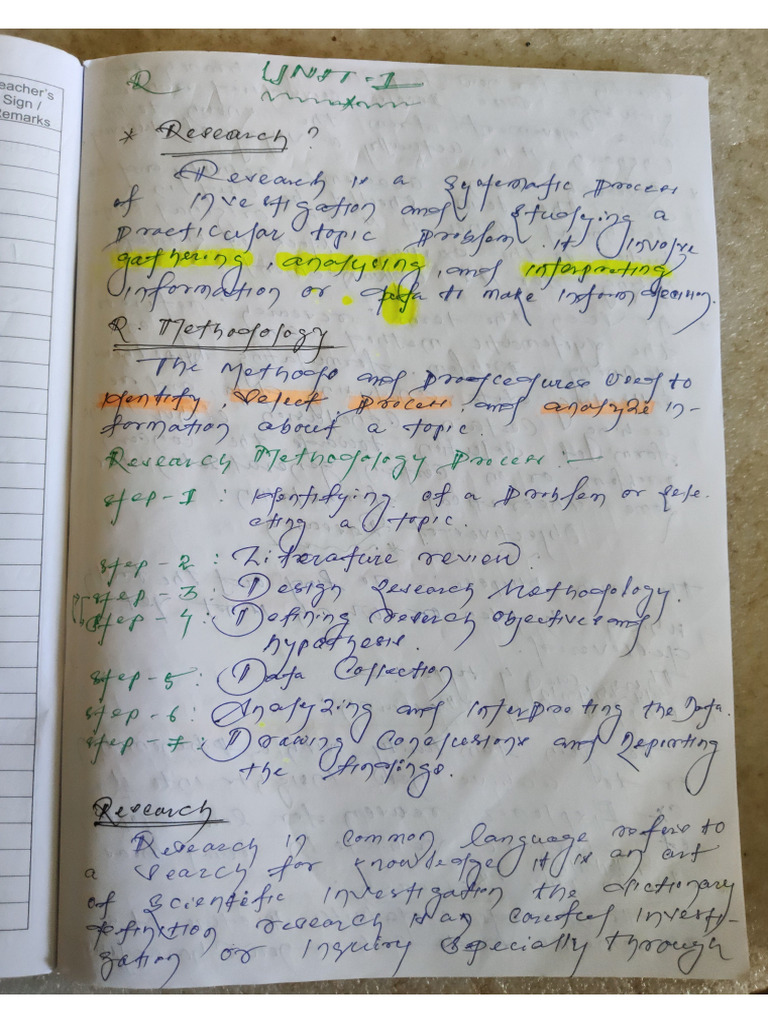 eacher's
Sign /
Remarks
R
UNIT - 1
* Research ?
Research is a systematic process
of investigation and studying a
practicular topic problem. it involve
gathering, analycing, and interpreting
information or data to make inform decision.
R. Methodology
The Methods and procedures used to
identify, select, process, and analyze in-
formation about a topic.
Research Methodology Process :-
step - 1 : identifying of a problem or sele-
cting a topic.
step - 2 : Literature review.
step - 3 : Design Research Methodology.
step - 4 : Defining research objectives and
hypothesis.
step - 5 : Data Collection
step - 6 : Analyzing and interpreting the Data.
step - 7 : Drawing Conclusions and Reporting
the findings.
Research
Research in common language refers to
a search for knowledge it is an art
of scientific investigation the dictionary
definition research is an careful investi-
gation or inquiry especially through